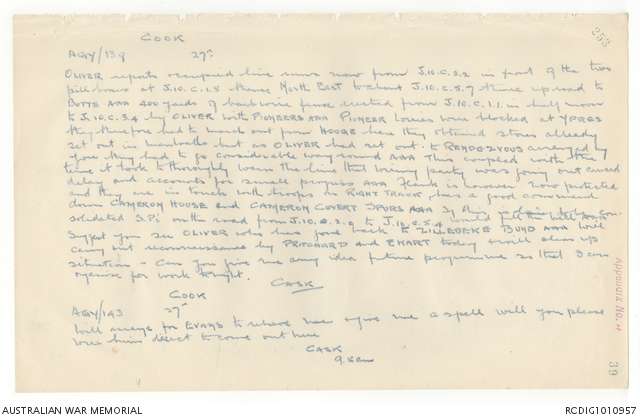 253
COOK
AGY/139 27th
OLIVER reports occupied line runs now from J.10.C.2.2 in front of the two
pillboxes at J.10.C.1.5 thence North East to about J.10.C.5.9 thence up road to
BUTTE AAA 400 yards of barb wire fence erected from J.10.C.1.1. in half moon
to J.10.C.3.4 by OLIVER with PIONEERS AAA PIONEER lorries were blocked at YPRES
they therefore had to march out from HOOGE here they obtained stores already
set out in but as OLIVER had set out to RENDEZVOUS arranged by
you they had to go considerable way round AAA This coupled with the
time it took to thoroughly warn the line that wiring party was going out caused
delay and accounts for small progress AAA Flank is however now protected
and they are in touch with troops on RIGHT TRENCH has a good command
down CAMERON HOUSE and CAMERON COVERT SPURS AAA
solidated S.Ps on the road from J.10. to J.10.c.5.4 would con-
Suggest you see OLIVER who has gone back to ZILLEBEKE BUND AAA Will
carry out reconnaissance by PRITCHARD and EHART today would clear up
situation - Can you give me any idea future programme so that I can
organise for work tonight.
CASK
COOK
AGY/143 27th
Will arrange for EVANS to relieve me give me a spell will you please
wire him direct to come out here
CASK
9.5am
Appendix No. 4
39
AUSTRALIAN WAR MEMORIAL
RCDIG1010957